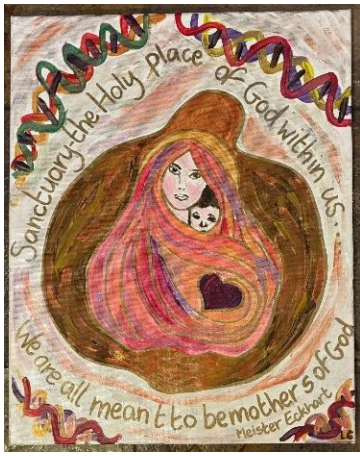 Sanctuary-the Holy place of God within us.
We are all meant to be mothers of God
Meister Eckhart
LC